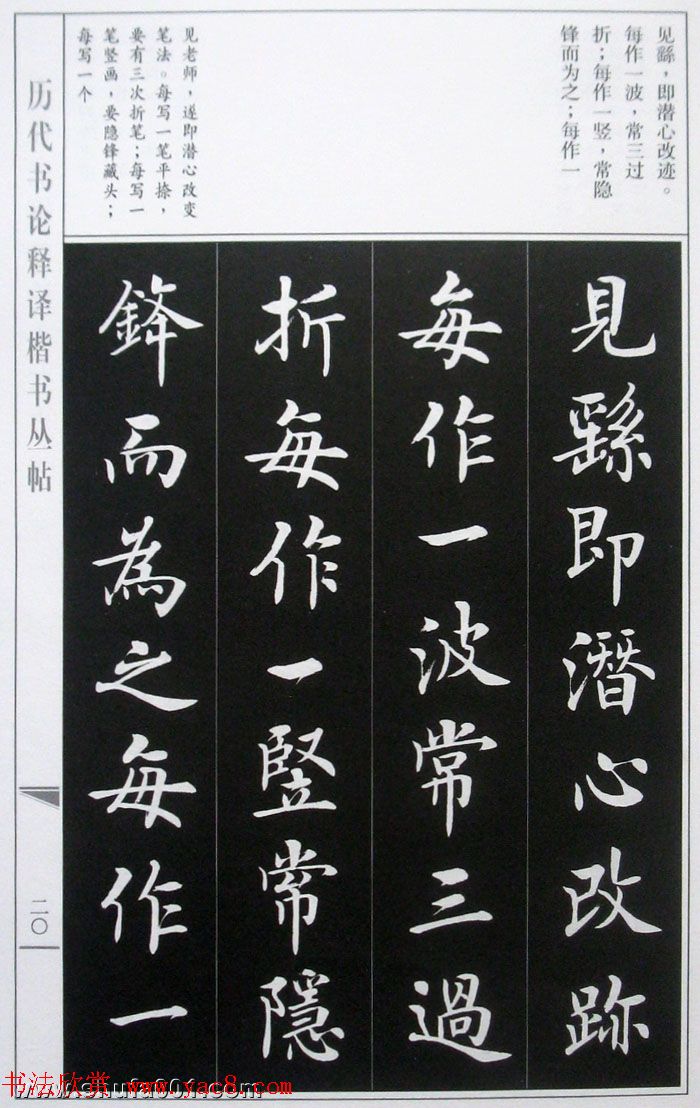 见繇，即潜心改迹。
每作一波，常三过
折；每作一竖，常隐
锋而为之；每作一
见老师，遂即潜心改变
笔法。每写一笔平捺，
要有三次折笔；每写一
笔竖画，要隐锋藏头；
每写一个
見繇即潛心改跡
每作一波常三過
折每作一竪常隱
鋒而為之每作一
历代书论释译楷书丛帖
二〇
书法欣赏 www.yac8.com